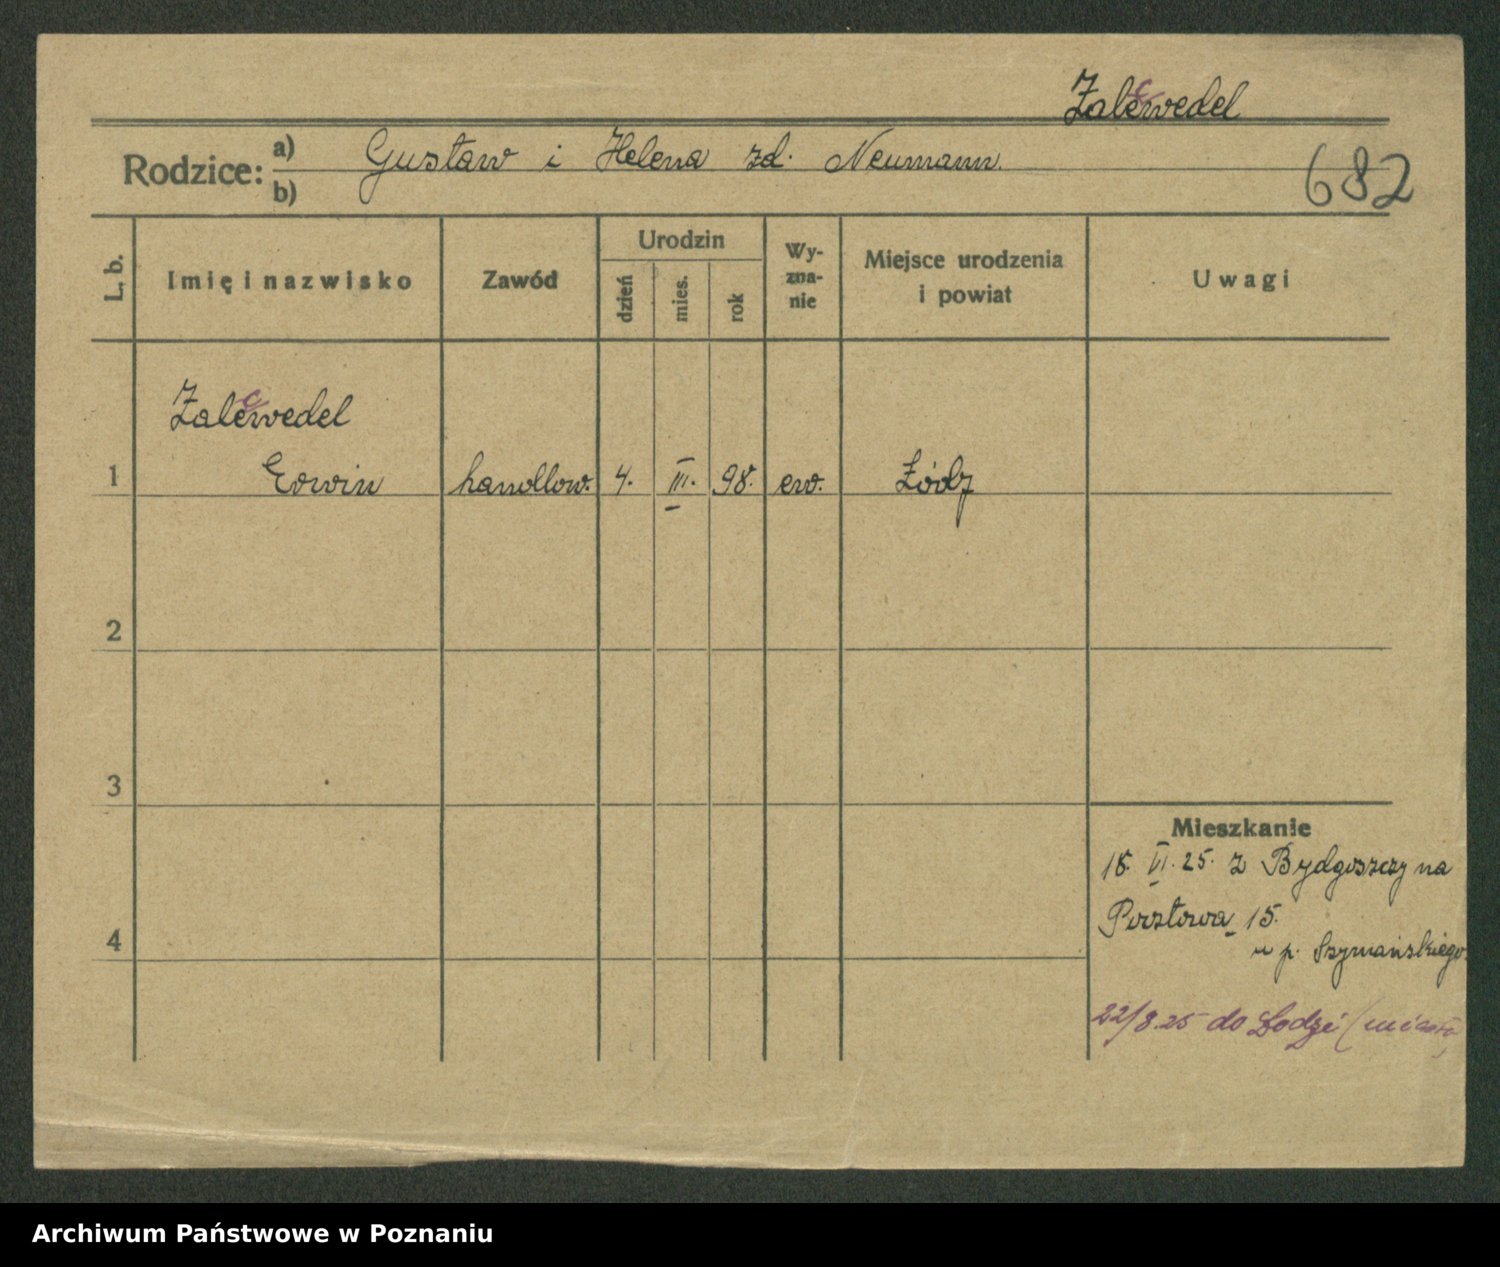 Zalewedel
Rodzice: a) Gustaw i Helena zd. Neumann.
b)
682
L. b.
Imię i nazwisko
Zawód
Urodzin
dzień
mies.
rok
Wy-
zna-
nie
Miejsce urodzenia
i powiat
Uwagi
Zalewedel
1 Erwin handlow. 4. III. 98. ew. Łódź
2
3
4
Mieszkanie
18. VI. 25. z Bydgoszczy na
Pocztowa 15.
u p. Szymańskiego
22/8.25 do Łodzi (miasto)
Archiwum Państwowe w Poznaniu